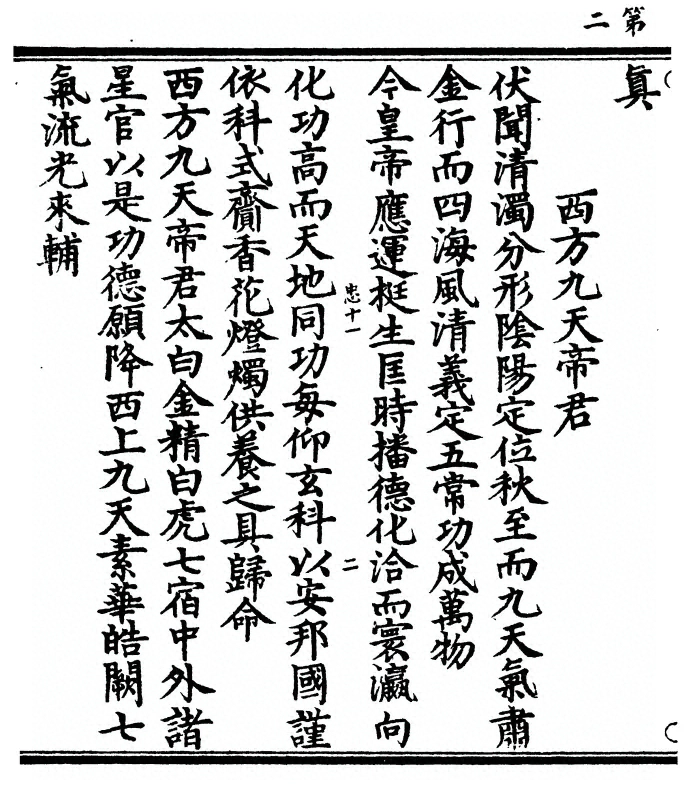 第二
真
西方九天帝君
伏聞清濁分形陰陽定位秋至而九天氣肅
金行而四海風清義定五常功成萬物
今皇帝應運挺生匡時播德化洽而寰瀛向
忠十一
二
化功高而天地同功每仰玄科以安邦國謹
依科式齎香花燈燭供養之具歸命
西方九天帝君太白金精白虎七宿中外諸
星官以是功德願降西上九天素華皓闕七
氣流光來輔